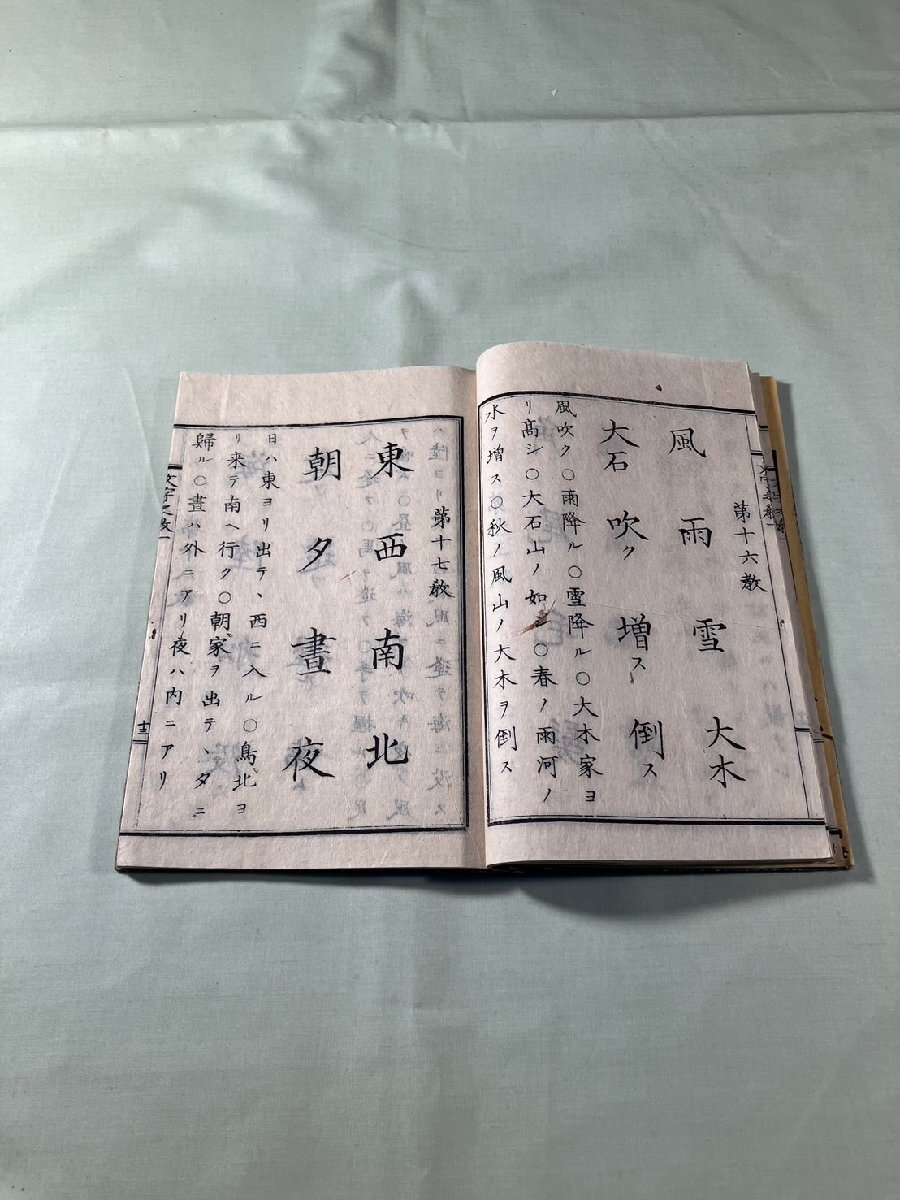 第十六教
風 雨 雪 大木
大石 吹ク 増ス 倒ス
風吹ク○雨降ル○雪降ル○大木家ヨ
リ髙シ○大石山ノ如シ○春ノ雨河ノ
水ヲ増ス○秋ノ風山ノ大木ヲ倒ス
第十七教
東 西 南 北
朝 夕 晝 夜
日ハ東ヨリ出テ、西ニ入ル○鳥北ヨ
リ来テ南ヘ行ク○朝家ヲ出テ、夕ニ
歸ル○晝ハ外ニアリ夜ハ内ニアリ
文字之教一
十二